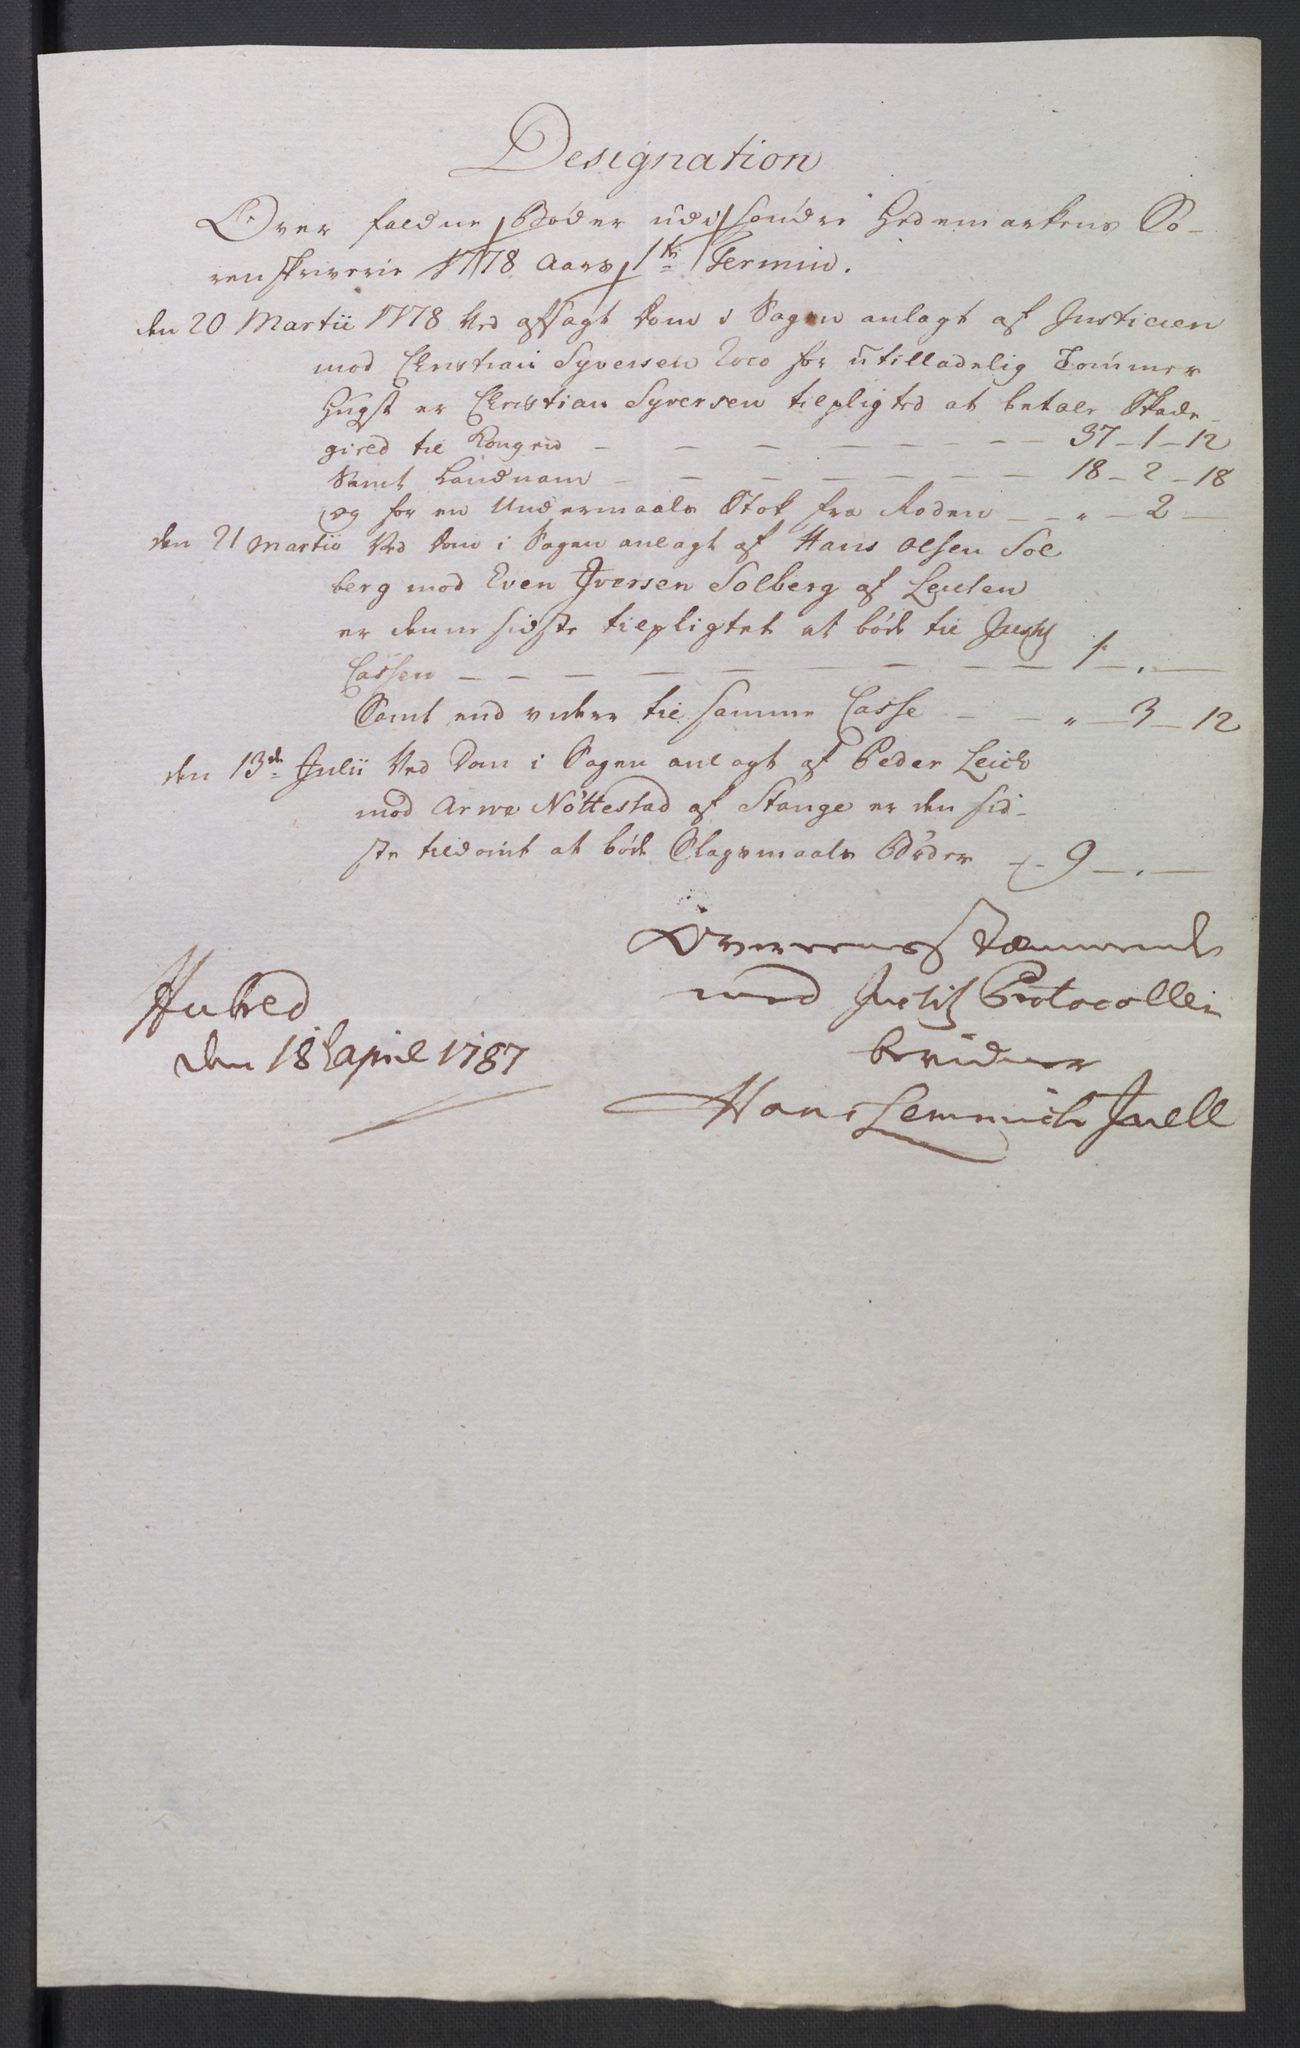 Designation
Over faldne Bøder udi Søndre Hedemarkens So-
renskriverie 1778 Aars 1te Termin.
den 20 Martii 1778 Ved afsagt Dom i Sagen anlagt af Justicien
mod Christian Syversen for utilladelig Tømmer
Hugst er Christian Syversen tilpligted at betale Skade-
gield til Kongen — — — — — — — — 37 – 1 – 12
Samt Landnam — — — — — — — — 18 – 2 – 18
og for en Undermaals Stok fra Roden — — " — 2 —
den 21 Martii Ved Dom i Sagen anlagt af Hans Olsen Sol
berg mod Even Iversen Solberg af Leuten
er denne sidste tilpligtet at bøde til Justitz
Cassen — — — — — — — — — 1 — . —
Samt end videre til samme Casse — — " — 3 — 12
den 13de Julii Ved Dom i Sagen anlagt af Peder Leich
mod Arne Nöttestad af Stange er den sid-
ste tildømt at bøde Slagsmaals Bøder — 9 — . —
Overeensstæmmende
med Justitz Protocollen
bevidner
Hans Lemmich Juell
Hubred
den 18 April 1787